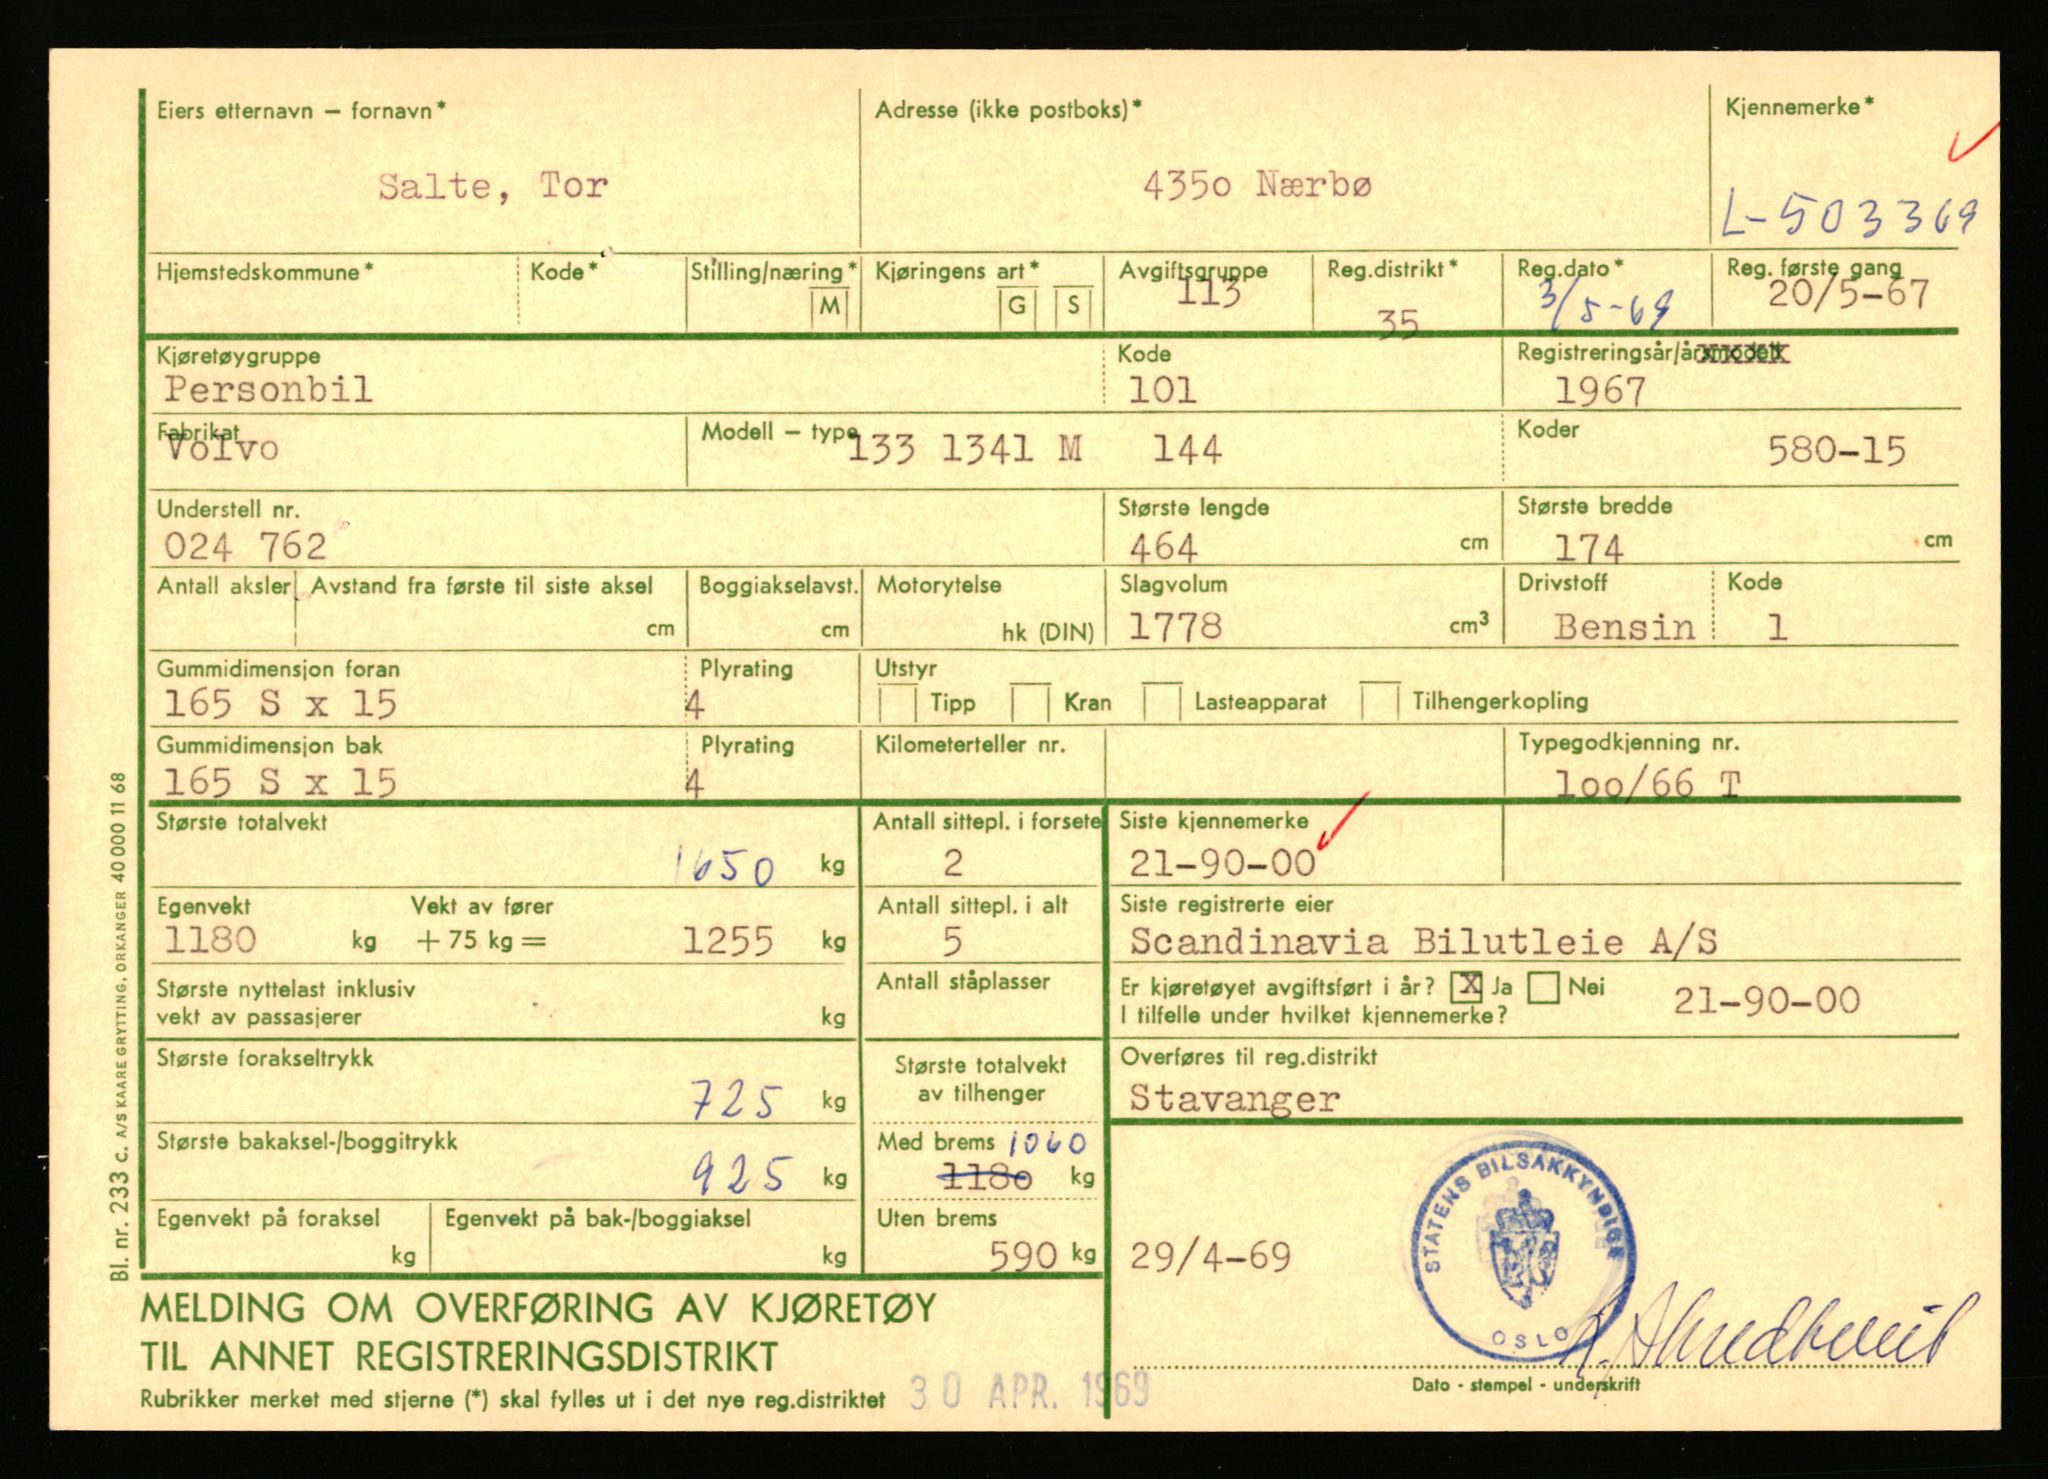 Eiers etternavn – fornavn*
Adresse (ikke postboks)*
Kjennemerke*
Salte, Tor
4350 Nærbø
L-503369
Hjemstedskommune*
Kode*
Stilling/næring*
M
Kjøringens art*
G S
Avgiftsgruppe
113
Reg.distrikt*
35
Reg.dato*
3/5-69
Reg. første gang
20/5-67
Kjøretøygruppe
Personbil
Kode
101
Registreringsår/årsmodell
1967
Fabrikat
Volvo
Modell – type
133 1341 M 144
Koder
580-15
Understell nr.
024 762
Største lengde
464 cm
Største bredde
174 cm
Antall aksler
Avstand fra første til siste aksel
cm
Boggiakselavst.
cm
Motorytelse
hk (DIN)
Slagvolum
1778 cm³
Drivstoff
Bensin
Kode
1
Gummidimensjon foran
165 S x 15
Plyrating
4
Utstyr
Tipp Kran Lasteapparat Tilhengerkopling
Gummidimensjon bak
165 S x 15
Plyrating
4
Kilometerteller nr.
Typegodkjenning nr.
100/66 T
Største totalvekt
1650 kg
Antall sittepl. i forsete
2
Siste kjennemerke
21-90-00
Egenvekt
1180 kg
Vekt av fører
+ 75 kg = 1255 kg
Antall sittepl. i alt
5
Siste registrerte eier
Scandinavia Bilutleie A/S
Største nyttelast inklusiv
vekt av passasjerer kg
Antall ståplasser
Er kjøretøyet avgiftsført i år? X Ja Nei
I tilfelle under hvilket kjennemerke?
21-90-00
Største forakseltrykk
725 kg
Største totalvekt
av tilhenger
Overføres til reg.distrikt
Stavanger
Største bakaksel-/boggitrykk
925 kg
Med brems 1060
1180 kg
Egenvekt på foraksel
kg
Egenvekt på bak-/boggiaksel
kg
Uten brems
590 kg
29/4-69
STATENS BILSAKKYNDIGE
OSLO
MELDING OM OVERFØRING AV KJØRETØY
TIL ANNET REGISTRERINGSDISTRIKT
Rubrikker merket med stjerne (*) skal fylles ut i det nye reg.distriktet
30 APR. 1969
Dato - stempel - underskrift
Bl. nr. 233 c. A/S KAARE GRYTTING, ORKANGER 40 000 11 68